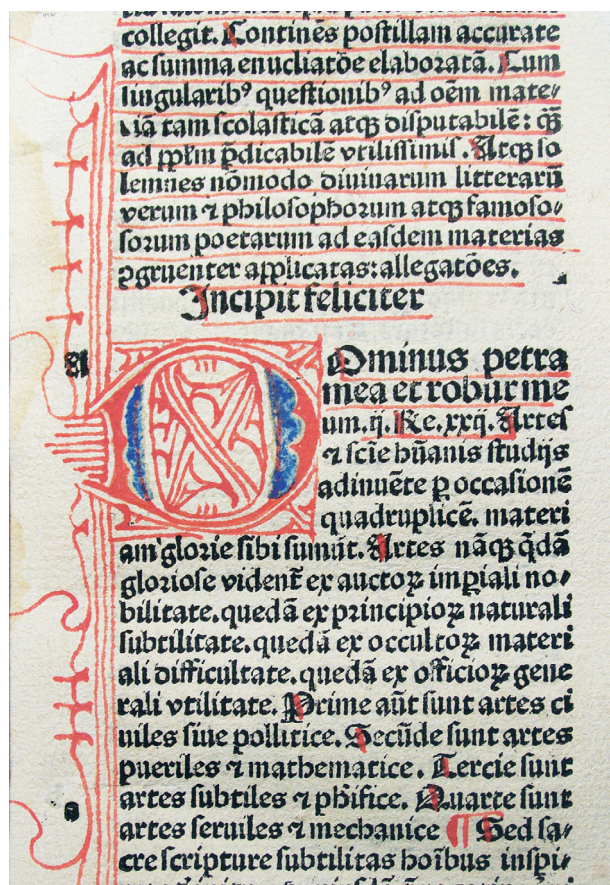 collegit. Continēs postillam accurate
ac summa enucliatōe elaboratā. Cum
singularibꝰ questionibꝰ ad oēm mate⸗
riā tam scolasticā atqꝫ disputabilē: qꝫ̄
ad pp̄lm p̄dicabilē vtilissimis. Atqꝫ so
lemnes nōmodo diuinarum litterarū
verum ⁊ philosophorum atqꝫ famoso⸗
sorum poetarum ad easdem materias
ꝯgruenter applicatas: allegatōes.
Incipit feliciter
A
Dominus petra
mea et robur me
um. ij. Re. xxij. Artes
⁊ sciē hūanis studijs
adinuēte ꝑ occasionē
quadruplicē. materi
am glorie sibi sumūt. Artes nāqꝫ q̄dā
gloriose vident̄ ex auctoꝝ imꝑiali no⸗
bilitate. quedā ex principioꝝ naturali
subtilitate. quedā ex occultoꝝ materi
ali difficultate. quedā ex officioꝝ gene
rali vtilitate. Prime aūt sunt artes ci
uiles siue pollitice. Secūde sunt artes
pueriles ⁊ mathematice. Tercie sunt
artes subtiles ⁊ phisice. Quarte sunt
a
artes seruiles ⁊ mechanice ¶ Sed sa⸗
cre scripture subtilitas hoībus inspi⸗